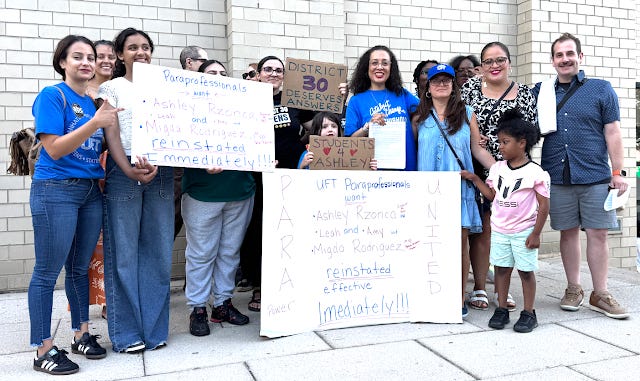 Paraprofessionals
want
Ashley Rzonca
Leah and
Migda Rodriguez
reinstated
immediately!!!
DISTRICT
30
DESERVES
ANSWERS
STUDENTS
4
ASHLEY
UFT Paraprofessionals
want
Ashley Rzonca
Leah and Amy
Migda Rodriguez
reinstated
effective
Imediately!!!
PARA
Power
UNITED
MESSI